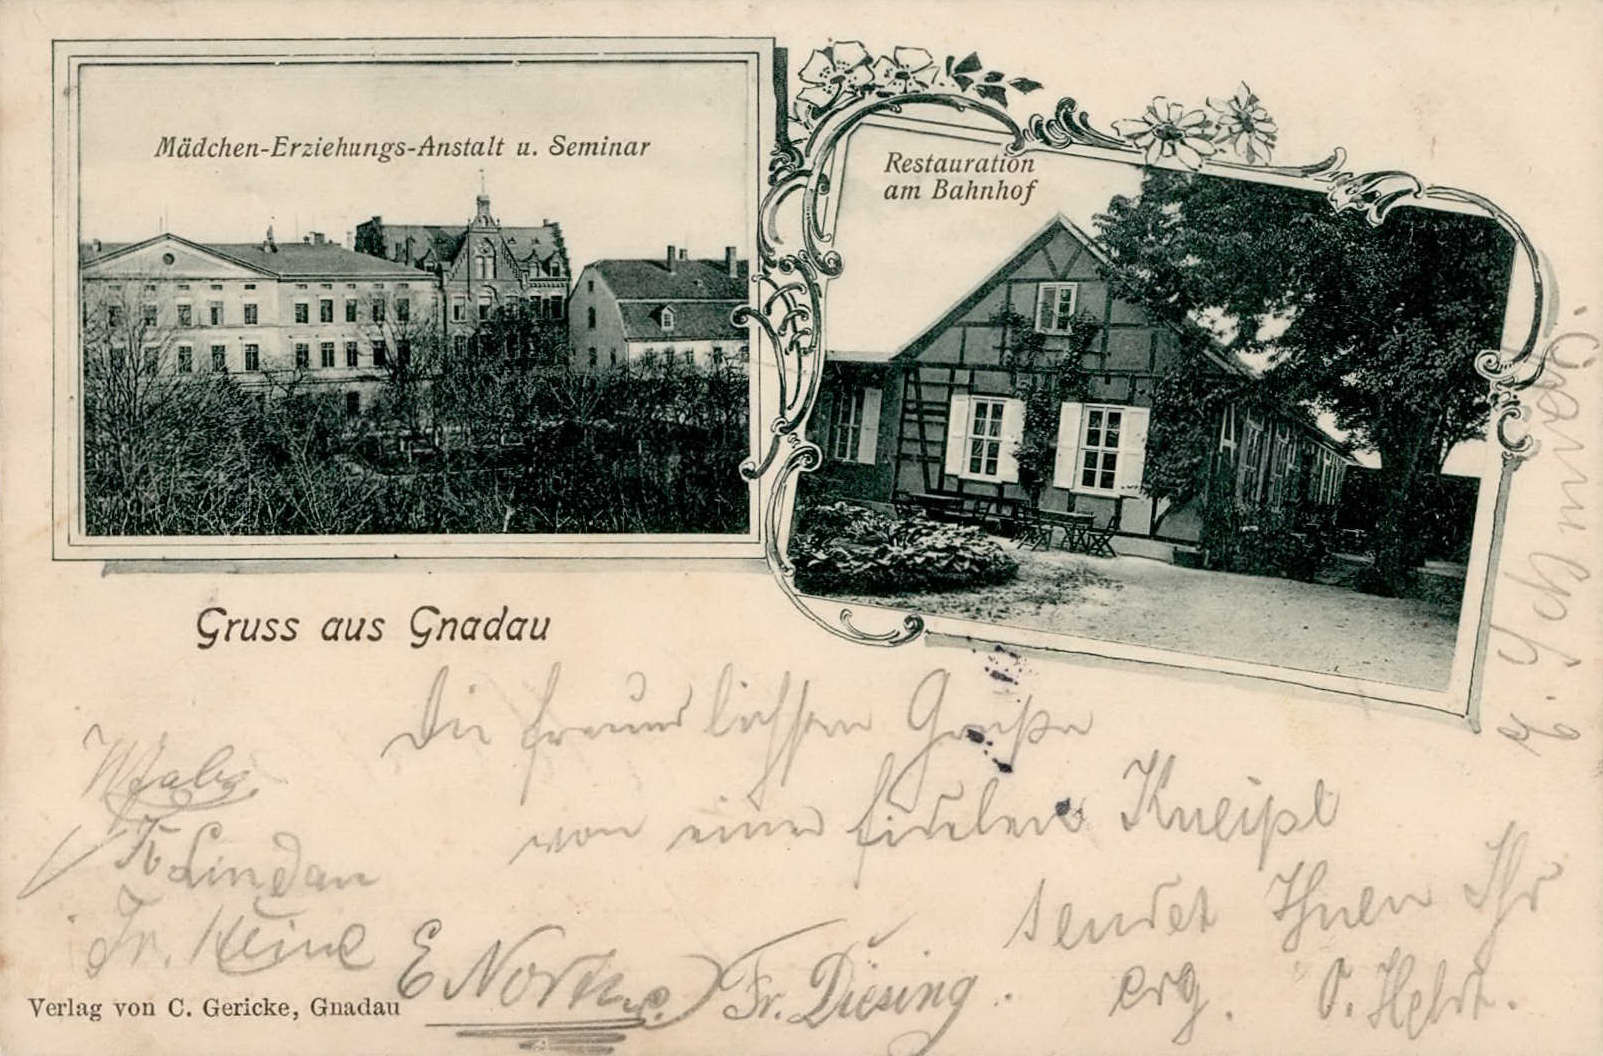 Mädchen-Erziehungs-Anstalt u. Seminar
Restauration
am Bahnhof
Gruss aus Gnadau
Die freundlichsten Grüße
von einer fidelen Kneipe
sendet Ihnen Ihr
erg. O.
K Lindau
Fr. Heine
E
Fr. Diesing
Verlag von C. Gericke, Gnadau